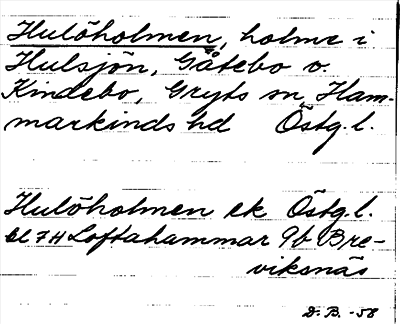 Hulöholmen, holme i
Hulsjön, Gåtebo o.
Kindebo, Gryts sn, Ham-
markinds hd Östg. l.
Hulöholmen ek Östg. l.
bl 7H Loftahammar 9b Bre-
viksnäs
D. B. -58